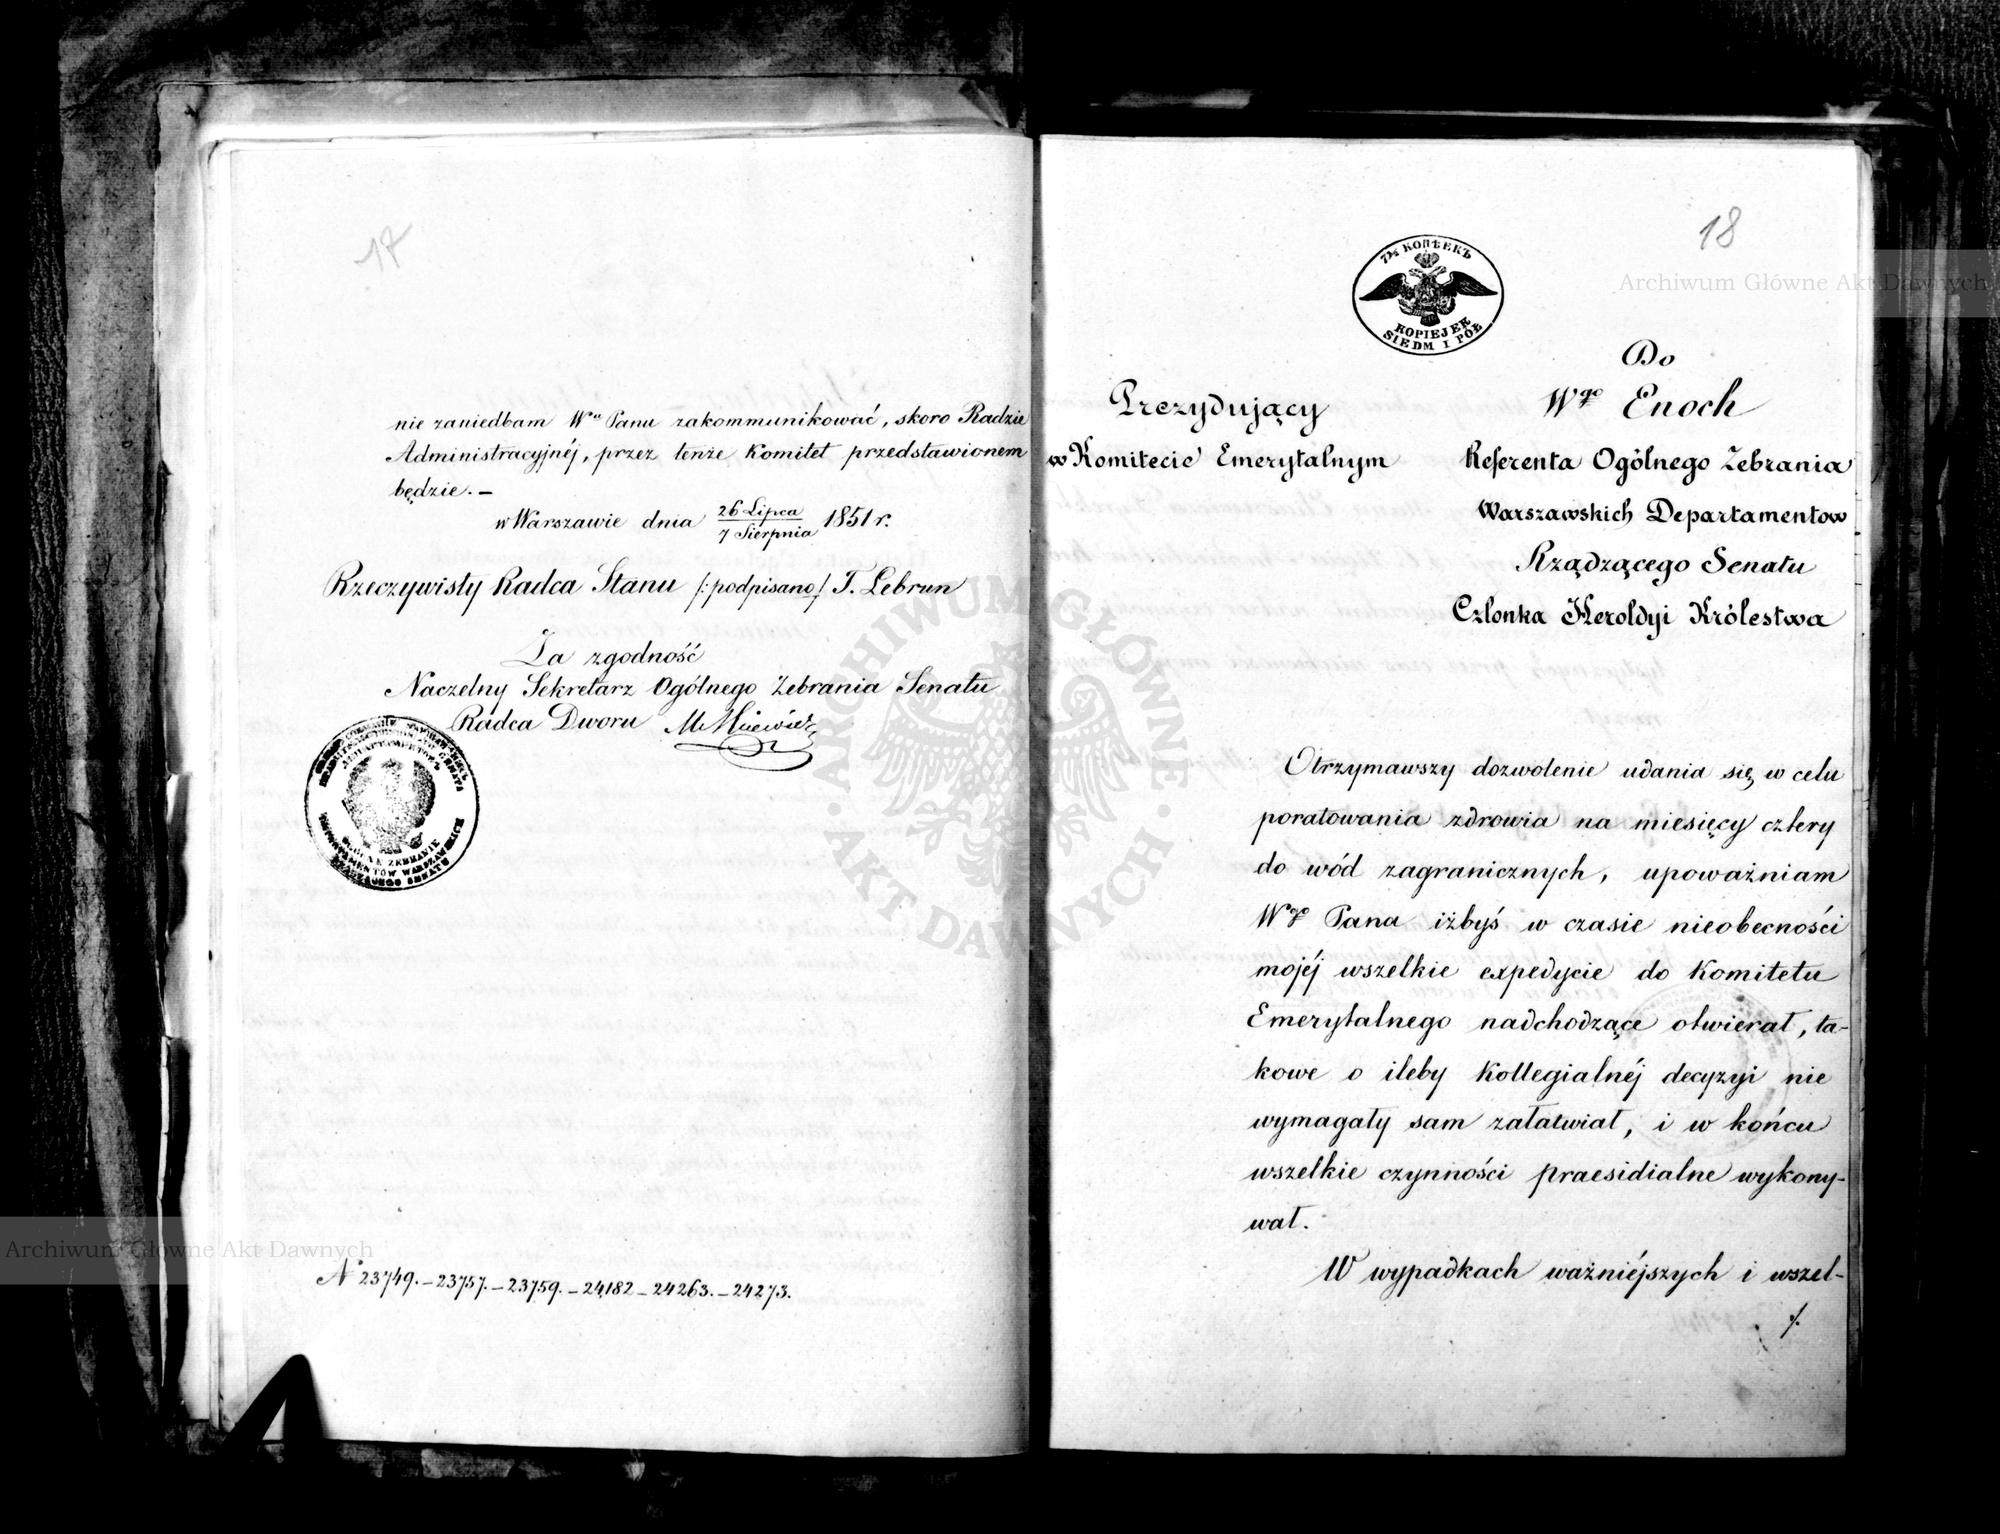 17
nie zaniedbam Wu Panu zakommunikować, skoro Radzie
Administracyjnéj, przez tenże Komitet przedstawionem
będzie. –
w Warszawie dnia 26 Lipca / 7 Sierpnia 1851 r.
Rzeczywisty Radca Stanu /:podpisano/ T. Lebrun
Za zgodność
Naczelny Sekretarz Ogólnego Zebrania Senatu
Radca Dworu
OGÓLNE ZEBRANIE
DEPARTAMENTÓW WARSZAWSKICH
RZĄDZĄCEGO SENATU
No 23749. – 23757. – 23759. – 24182 – 24263. – 24273.
18
7½ КОПѢЕКЪ
KOPIEJEK
SIEDM I PÓŁ
Do
Wgo Enoch
Prezydujący
w Komitecie Emerytalnym
Referenta Ogólnego Zebrania
Warszawskich Departamentow
Rządzącego Senatu
Członka Heroldyi Królestwa
Otrzymawszy dozwolenie udania się, w celu
poratowania zdrowia na miesięcy cztery
do wód zagranicznych, upoważniam
Wgo Pana iżbyś w czasie nieobecności
mojéj wszelkie expedycie do Komitetu
Emerytalnego nadchodzące otwierał, ta-
kowe o ileby Kollegialnéj decyzyi nie
wymagały sam załatwiał, i w końcu
wszelkie czynności praesidialne wykony-
wał.
W wypadkach ważniéjszych i wszel-
./.
ARCHIWUM GŁÓWNE AKT DAWNYCH
Archiwum Główne Akt Dawnych
Archiwum Główne Akt Dawnych